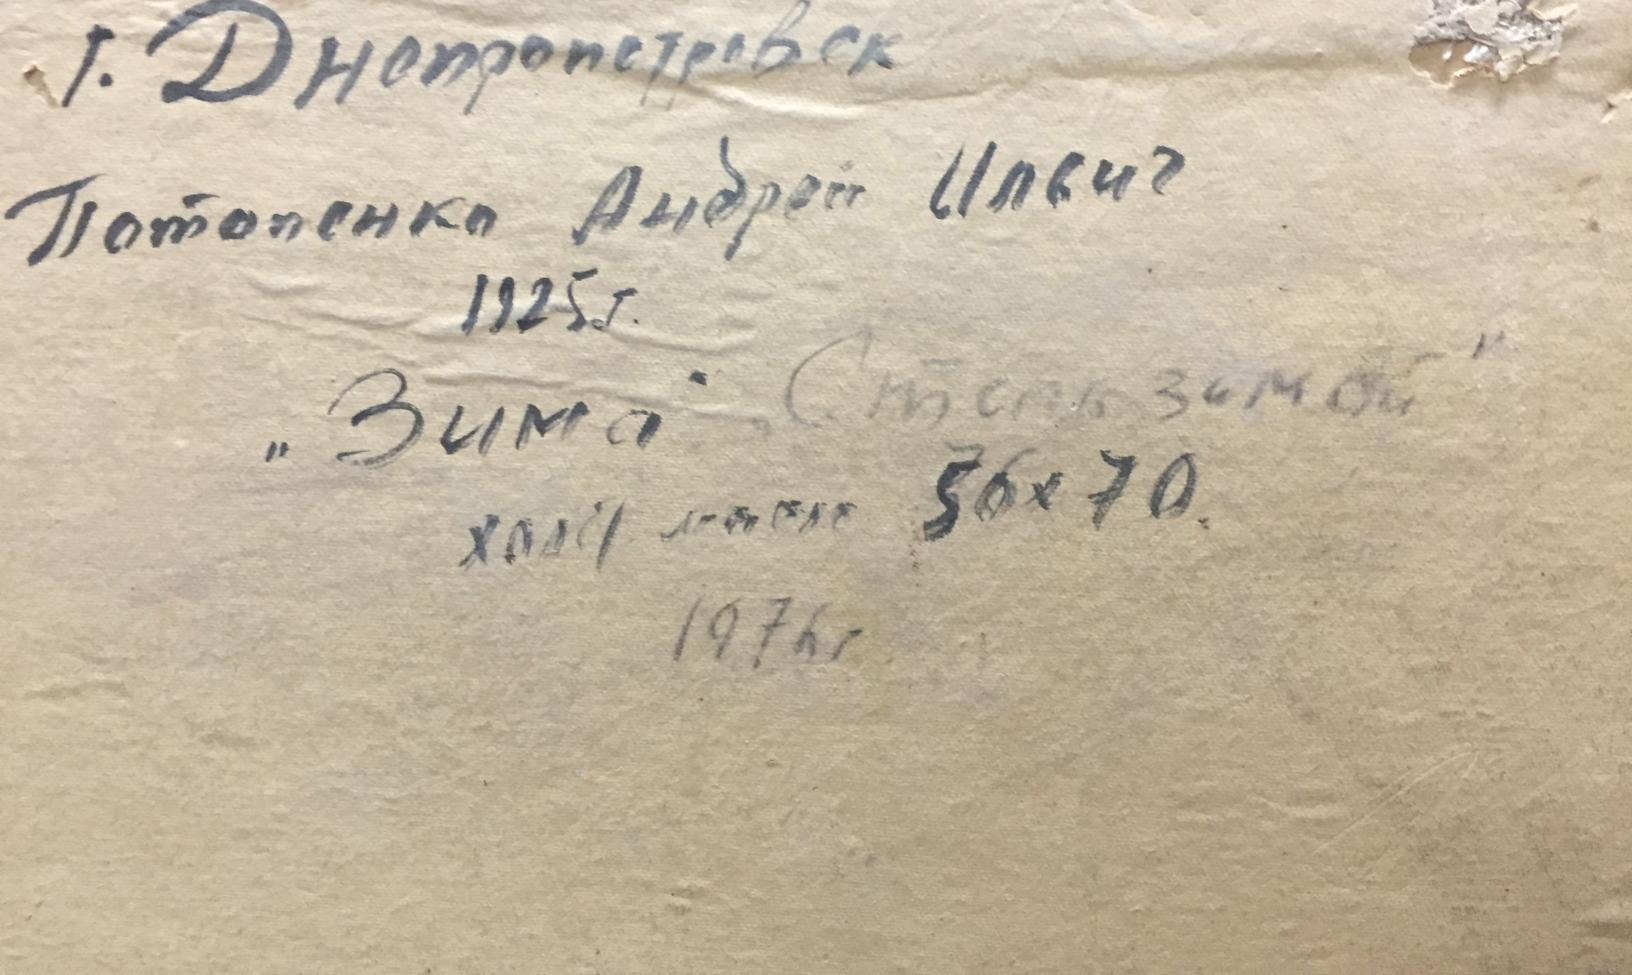 г. Днепропетровск
Потапенко Андрей Ильич
1925г.
„Зима" зимой"
холст масло 56х70.
1976г